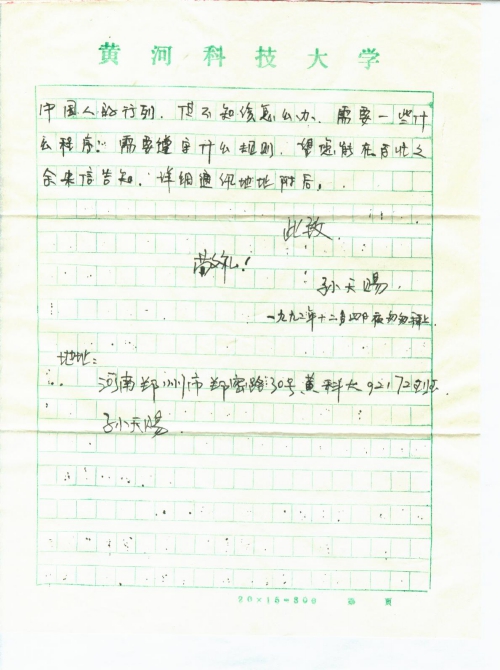 黄河科技大学
中国人的行列，但不知该怎么办，需要一些什
么程序？需要遵守什么规则，望您能在百忙之
余来信告知，详细通讯地址附后。
此致
敬礼！
孙天赐
一九九二年十二月四日夜匆匆
地址：
河南郑州市郑密路30号黄科大92172
孙天赐
20×15=300